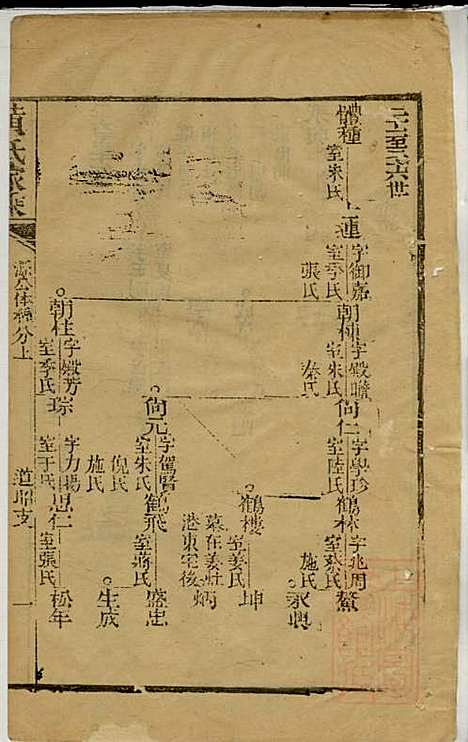 體種
室朱氏
上連
字御嘉
室季氏
張氏
朝棟
字殿瞻
室朱氏
秦氏
尙仁
字學珍
室陸氏
鶴林
字兆周
室蔡氏
施氏
鰲
永興
鶴樓
室姜氏
坤
炳
墓在姜灶
港東宅後
尙元
字駕賢
室朱氏
倪氏
施氏
鶴飛
室蔣氏
盛忠
生成
朝佐
字殿芳
室季氏
琮
字力揚
室于氏
思仁
室張氏
松年
黃氏家乘
源公体種分上
道昭支
一